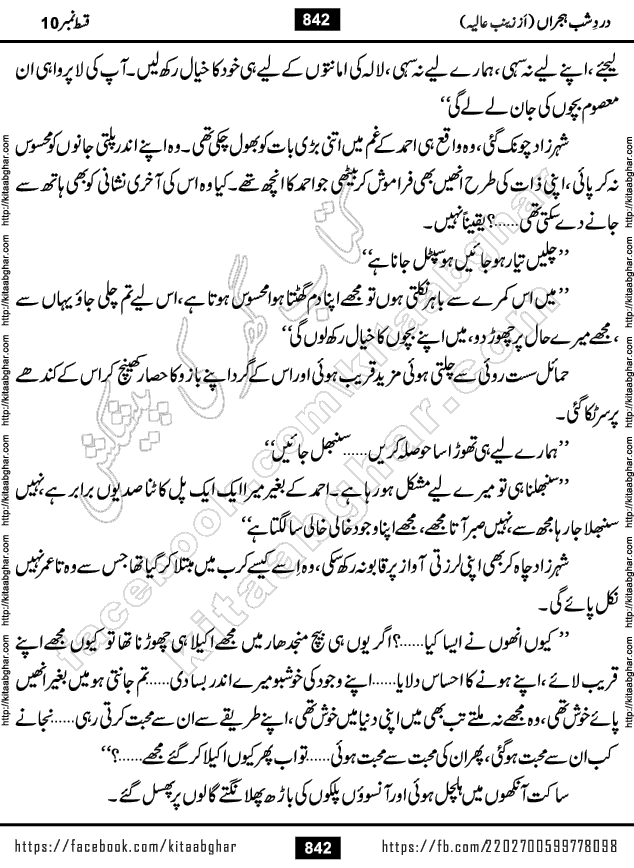 قسط نمبر 10 842 دردِ شب ہجراں (از زینب عالیہ)
لیجئے، اپنے لیے نہ سہی، ہمارے لیے نہ سہی، لالہ کی امانتوں کے لیے ہی خود کا خیال رکھ لیں۔ آپ کی لاپرواہی ان
معصوم بچوں کی جان لے لے گی‘‘
شہرزاد چونک گئی، وہ واقع ہی احمد کے غم میں اتنی بڑی بات کو بھول چکی تھی۔ وہ اپنے اندر پلتی جانوں کو محسوس
نہ کر پائی، اپنی ذات کی طرح انھیں بھی فراموش کر بیٹھی جو احمد کا انچھ تھے۔ کیا وہ اس کی آخری نشانی کو بھی ہاتھ سے
جانے دے سکتی تھی......؟ یقیناً نہیں۔
’’چلیں تیار ہو جائیں ہوسپٹل جانا ہے‘‘
’’میں اس کمرے سے باہر نکلتی ہوں تو مجھے اپنا دم گھٹتا ہوا محسوس ہوتا ہے، اس لیے تم چلی جاؤ یہاں سے
، مجھے میرے حال پر چھوڑ دو، میں اپنے بچوں کا خیال رکھ لوں گی‘‘
حمائل سست روئی سے چلتی ہوئی مزید قریب ہوئی اور اس کے گرد اپنے بازو کا حصار کھینچ کر اس کے کندھے
پر سر ٹکا گئی۔
’’ہمارے لیے ہی تھوڑا سا حوصلہ کریں......سنبھل جائیں‘‘
’’سنبھلنا ہی تو میرے لیے مشکل ہو رہا ہے۔ احمد کے بغیر میرا ایک ایک پل کاٹنا صدیوں برابر ہے، نہیں
سنبھلا جا رہا مجھ سے، نہیں صبر آتا مجھے، مجھے اپنا وجود خالی خالی سا لگتا ہے‘‘
شہرزاد چاہ کر بھی اپنی لرزتی آواز پر قابو نہ رکھ سکی، وہ اِسے کیسے کرب میں مبتلا کر گیا تھا جس سے وہ تا عمر نہیں
نکل پائے گی۔
’’ کیوں انھوں نے ایسا کیا......؟ اگر یوں ہی بیچ منجدھار میں مجھے اکیلا ہی چھوڑنا تھا تو کیوں مجھے اپنے
قریب لائے، اپنے ہونے کا احساس دلایا......اپنے وجود کی خوشبو میرے اندر بسا دی......تم جانتی ہو میں بغیر انھیں
پائے خوش تھی، وہ مجھے نہ ملتے تب بھی میں اپنی دنیا میں خوش تھی، اپنے طریقے سے ان سے محبت کرتی رہی......نجانے
کب ان سے محبت ہو گئی، پھر ان کی محبت سے محبت ہوئی......تو اب پھر کیوں اکیلا کر گئے مجھے......؟‘‘
ساکت آنکھوں میں ہلچل ہوئی اور آنسوؤں پلکوں کی باڑھ پھلانگتے گالوں پر پھسل گئے۔
https://facebook.com/kitaabghar 842 https://fb.com/2202700599778098
http://kitaabghar.com http://kitaabghar.com http://kitaabghar.com http://kitaabghar.com http://kitaabghar.com http://kitaabghar.com
http://kitaabghar.com http://kitaabghar.com http://kitaabghar.com http://kitaabghar.com http://kitaabghar.com http://kitaabghar.com
کتاب گھر کی پیشکش
facebook.com/kitaabghar
kitaabghar.com